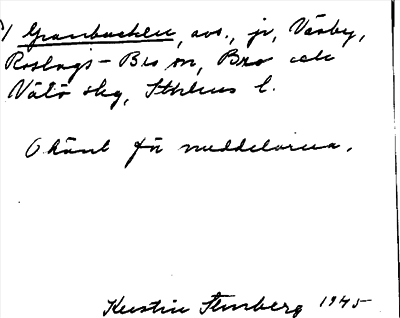 1 Granbacken, avs., jr, Väsby,
Roslags-Bro sn, Bro och
Vätö skg, Sthlms l.
Okänt för meddelarna.
Kerstin Stenberg 1945